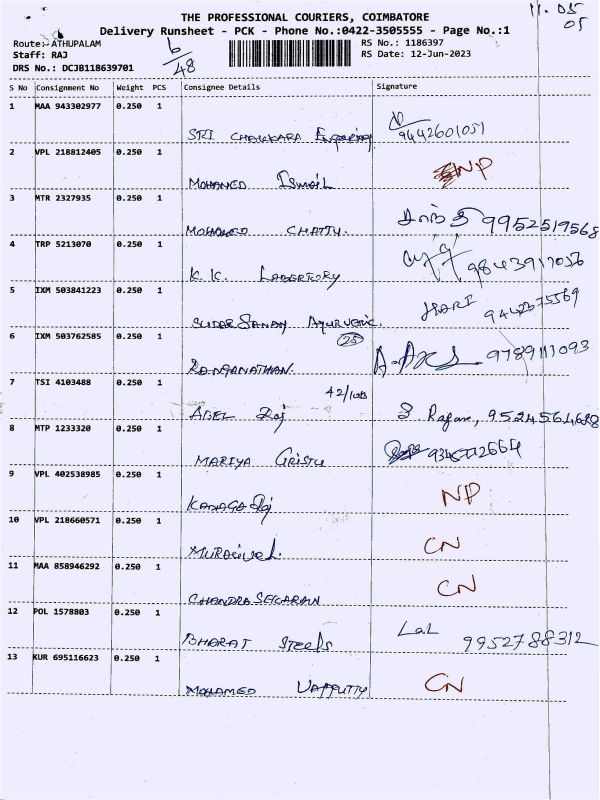 THE PROFESSIONAL COURIERS, COIMBATORE
11.05
05
Delivery Runsheet - PCK - Phone No.:0422-3505555 - Page No.:1
Route:- ATHUPALAM
6/48
RS No.: 1186397
Staff: RAJ
RS Date: 12-Jun-2023
DRS No.: DCJB118639701
S No Consignment No Weight PCS Consignee Details Signature
1 MAA 943302977 0.250 1
SRI CHAKKARA 9442601051
2 VPL 218812405 0.250 1
MOHAMED Ismail NP
3 MTR 2327935 0.250 1
MOHAMED CHATTU. சாந்தி 9952519568
4 TRP 5213070 0.250 1
K.K. LABERTORY 9843917056
5 IXM 503841223 0.250 1
SUDARSANAM AYURVEDIC. HARI 9442375569
6 IXM 503762585 0.250 1
25
RANGANATHAN. 9789111093
7 TSI 4103488 0.250 1
42/10B
ABEL Raj 9524564688
8 MTP 1233320 0.250 1
MARIYA CRISTU
9 VPL 402538985 0.250 1
KANAGARaj NP
10 VPL 218660571 0.250 1
MURAGIVEL. CN
11 MAA 858946292 0.250 1
CHANDRASEGARAN CN
12 POL 1578803 0.250 1
BHARAT STEELS LaL 9952788312
13 KUR 695116623 0.250 1
MOHAMED VAPPUTTY CN